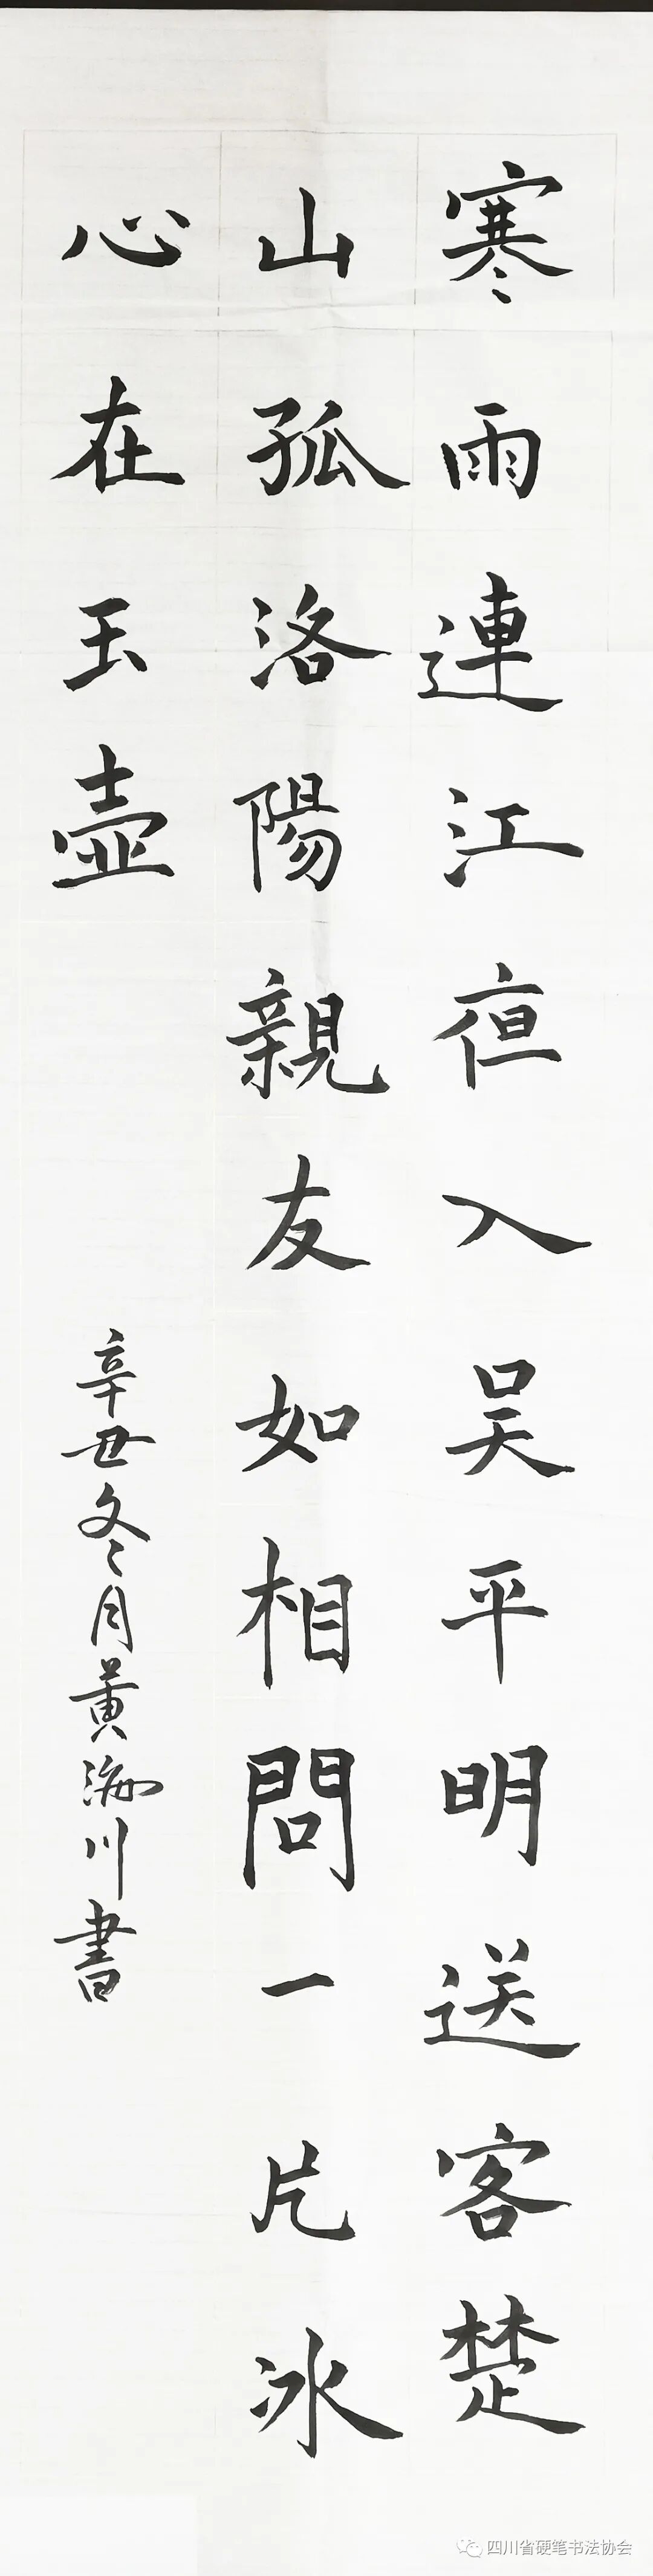 寒雨連江夜入吴平明送客楚
山孤洛陽親友如相問一片冰
心在玉壺
辛丑冬月黄海川書
四川省硬笔书法协会